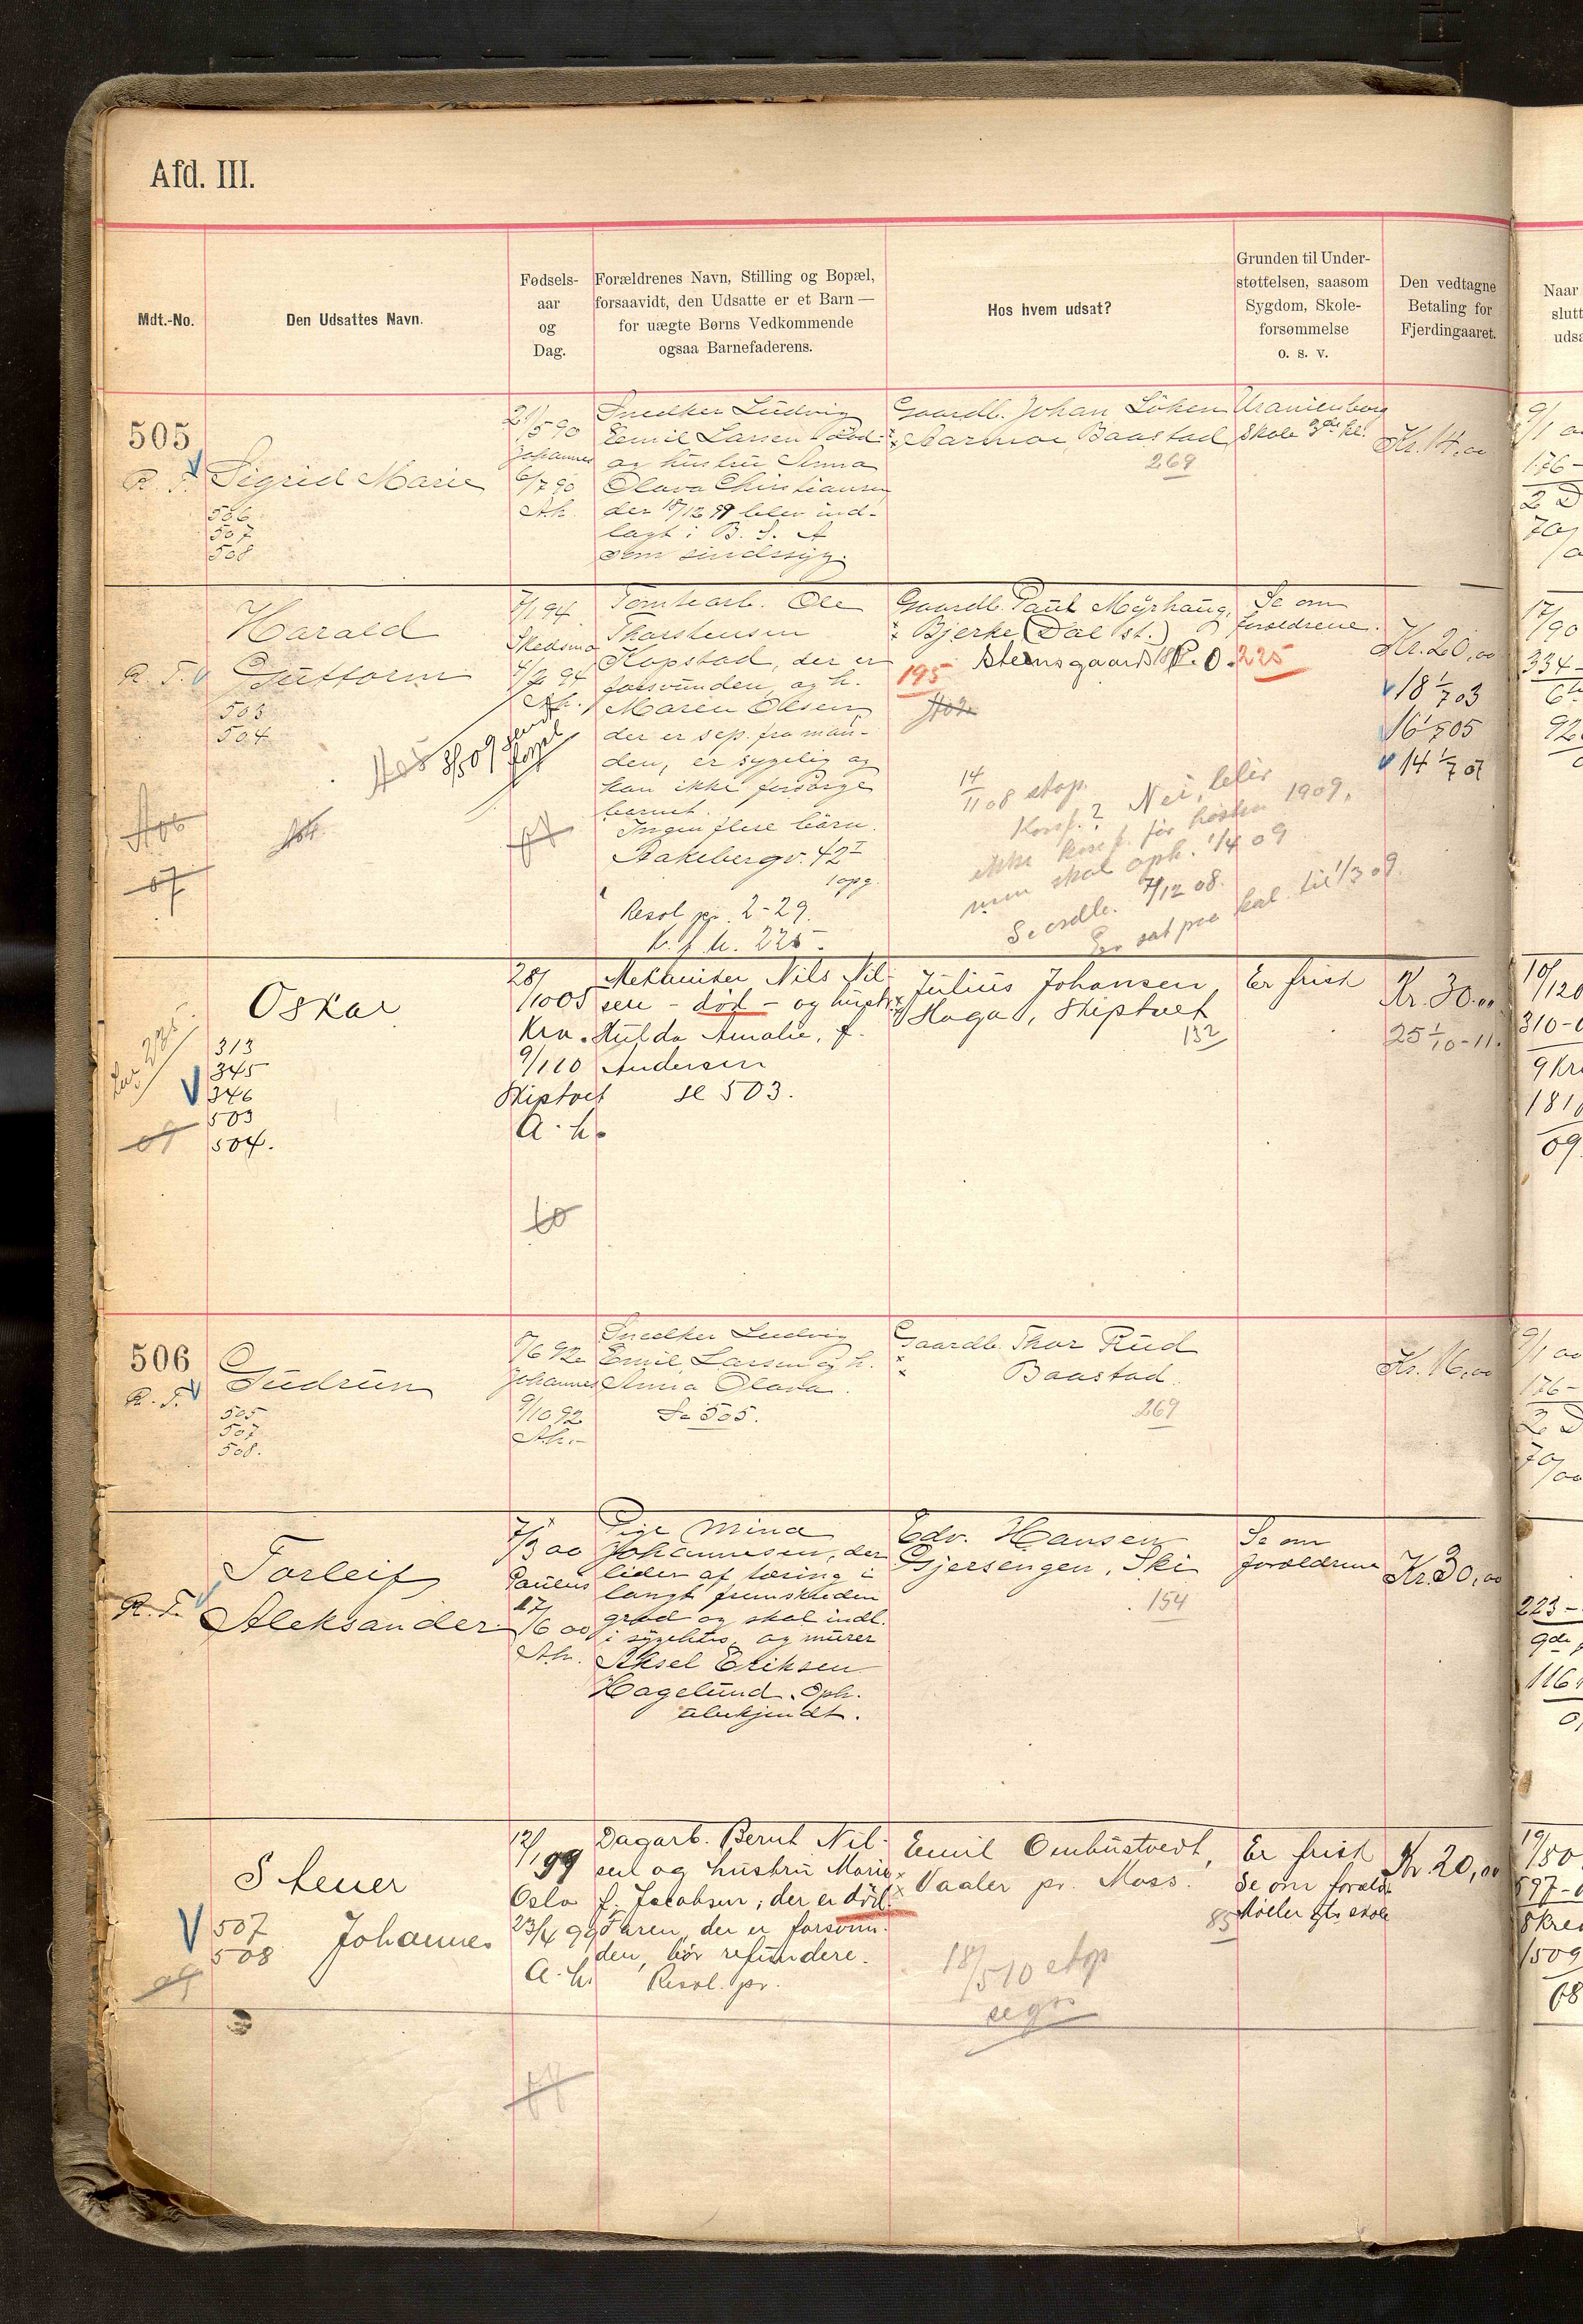 Afd. III.
Mdt.-No.
Den Udsattes Navn.
Fødsels-
aar
og
Dag.
Forældrenes Navn, Stilling og Bopæl,
forsaavidt, den Udsatte er et Barn —
for uægte Børns Vedkommende
ogsaa Barnefaderens.
Hos hvem udsat?
Grunden til Under-
støttelsen, saasom
Sygdom, Skole-
forsømmelse
o. s. v.
Den vedtagne
Betaling for
Fjerdingaaret.
Naar
slutt
udsa
505
R. T.
Sigrid Marie
506
507
508
21/5 90
Johannes
6/7 90
A.h.
Snedker Ludvig
Eemil Larsen - død -
og hustru Anna
Olava Christiansen
der 18/12 99 blev ind-
lagt i B. S. A
som sindssyg.
Gaardb. Johan Löken
Aarmoe Baastad
269
Uranienborg
Skole 3die kl.
Kr. 14,00
R. T.
Harald
Guttorm
503
504
7/1 94
Skedsmo
4/2 94
A.h.
3/5 09
Tomtearb. Ole
Thorstensen
Kopstad, der er
forsvunden og h.
Maren Olsen,
der er sep. fra man-
den, er sygelig og
kan ikke forsørge
barnet.
Ingen flere børn.
Aakebergv. 42 I
1 opg.
Resol pr. 2-29.
K. f. h. 225.
Gaardb. Paul Myrhaug,
Bjerke (Dal st.)
Stensgaard P. O. 225
195
14/11 08 stop.
Konf.? Nei, blir
ikke konf. før høsten 1909,
men skal oph. 1/4 09
Se ordb. 7/12 08.
Er sat paa kal. til 1/3 09.
Se om
foreldrene.
Kr. 20,00
18 1/7 03
16 1/7 05
14 1/7 07
Oskar
313
345
346
503
504.
28/10 05
Kra.
9/1 10
Skiptvet
A. h.
Mekaniker Nils Nil-
sen - død - og hustr.
Hulda Amalie, f.
Andersen
se 503.
Julius Johansen,
Haga, Skiptvet
132
Er frisk
Kr. 30.00
25 1/10-11.
506
R. T.
Gudrun
505
507
508.
Johannes
9/10 92
A.h.-
Snedker Ludvig
Emil Larsen og h.
Anna Olava.
Se 505.
Gaardb. Thor Rud
Baastad.
269
Kr. 16,00
R. T.
Torleif
Aleksander
7/3 00
Paulus
17/6 00
A.h.
Pige Mina
Johannesen, der
lider af tæring i
langt fremskreden
grad og skal indl.
i sygehus, og murer
Aksel Eriksen
Hagelund. Oph.
ubekjendt.
Edv. Hansen
Gjersengen, Ski
154
Se om
foreldrene
Kr. 30,00
Stener
Johannes
507
508
12/1 99
Oslo
23/4 99
A. h.
Dagarb. Bernt Nil-
sen og hustru Marie
f. Jacobsen; der er død.
Faren, der er forsvun-
den, bør refundere.
Resol. pr.
Emil Ombustvedt,
Vaaler pr. Moss.
85
18/5 10 stop
Er frisk
Se om foreldr
Møller gts skole
Kr. 20,00